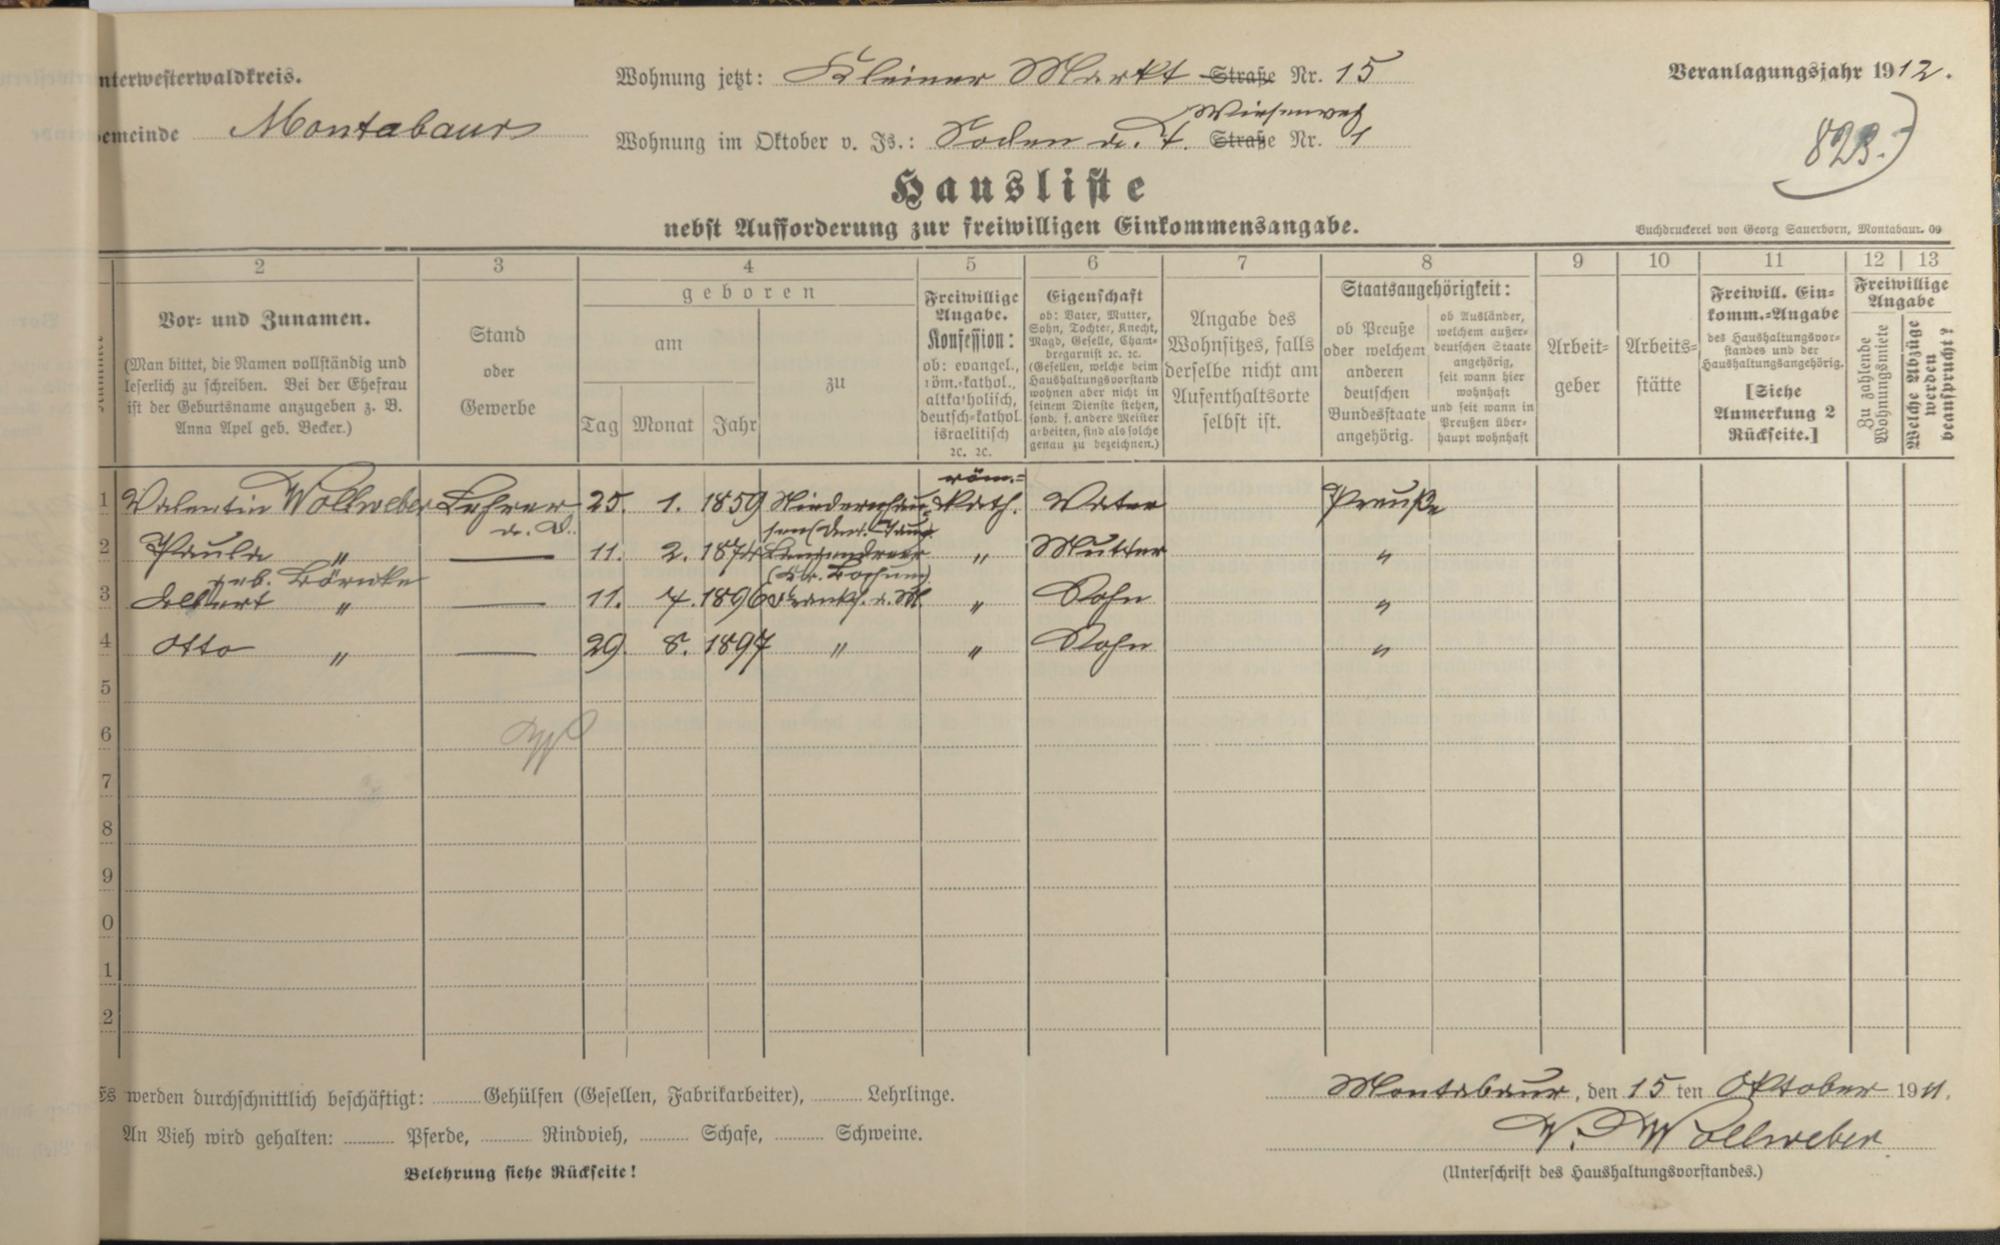 nterwesterwaldkreis.
Wohnung jetzt: Kleiner Markt Straße Nr. 15
Veranlagungsjahr 1912.
Wiesenweg
emeinde Montabaur
Wohnung im Oktober v. Js.: Soden a. T. Straße Nr. 1
823.
Hausliste
nebst Aufforderung zur freiwilligen Einkommensangabe.
Buchdruckerei von Georg Sauerborn, Montabaur. 09
2 3 4 5 6 7 8 9 10 11 12 13
Vor- und Zunamen.
(Man bittet, die Namen vollständig und
leserlich zu schreiben. Bei der Ehefrau
ist der Geburtsname anzugeben z. B.
Anna Apel geb. Becker.)
Stand
oder
Gewerbe
geboren
am
Tag Monat Jahr
zu
Freiwillige
Angabe.
Konfession:
ob: evangel.,
röm.-kathol.,
altkatholisch,
deutsch-kathol.
israelitisch
ꝛc. ꝛc.
Eigenschaft
ob: Vater, Mutter,
Sohn, Tochter, Knecht,
Magd, Geselle, Cham-
bregarnist ꝛc. ꝛc.
(Gesellen, welche beim
Haushaltungsvorstand
wohnen aber nicht in
seinem Dienste stehen,
sond. f. andere Meister
arbeiten, sind als solche
genau zu bezeichnen.)
Angabe des
Wohnsitzes, falls
derselbe nicht am
Aufenthaltsorte
selbst ist.
Staatsangehörigkeit:
ob Preuße
oder welchem
anderen
deutschen
Bundesstaate
angehörig.
ob Ausländer,
welchem außer-
deutschen Staate
angehörig,
seit wann hier
wohnhaft
und seit wann in
Preußen über-
haupt wohnhaft
Arbeit-
geber
Arbeits-
stätte
Freiwill. Ein-
komm.-Angabe
des Haushaltungsvor-
standes und der
Haushaltungsangehörig.
[Siehe
Anmerkung 2
Rückseite.]
Freiwillige
Angabe
Zu zahlende
Wohnungsmiete
Welche Abzüge
werden
beansprucht?
1 Valentin Wollweber Lehrer a. D. 25. 1. 1859 Niedernhausen röm.-kath. Vater Preuße
2 Paula " geb. Börnke — 11. 2. 1874 Langendreer (Kr. Bochum) " Mutter "
3 Albert " — 11. 7. 1896 Frankf. a. M. " Sohn "
4 Otto " — 29. 8. 1897 " " Sohn "
5
6
7
8
9
0
1
2
Es werden durchschnittlich beschäftigt: Gehülfen (Gesellen, Fabrikarbeiter), Lehrlinge.
An Vieh wird gehalten: Pferde, Rindvieh, Schafe, Schweine.
Belehrung siehe Rückseite!
Montabaur, den 15 ten Oktober 1911.
V. Wollweber
(Unterschrift des Haushaltungsvorstandes.)